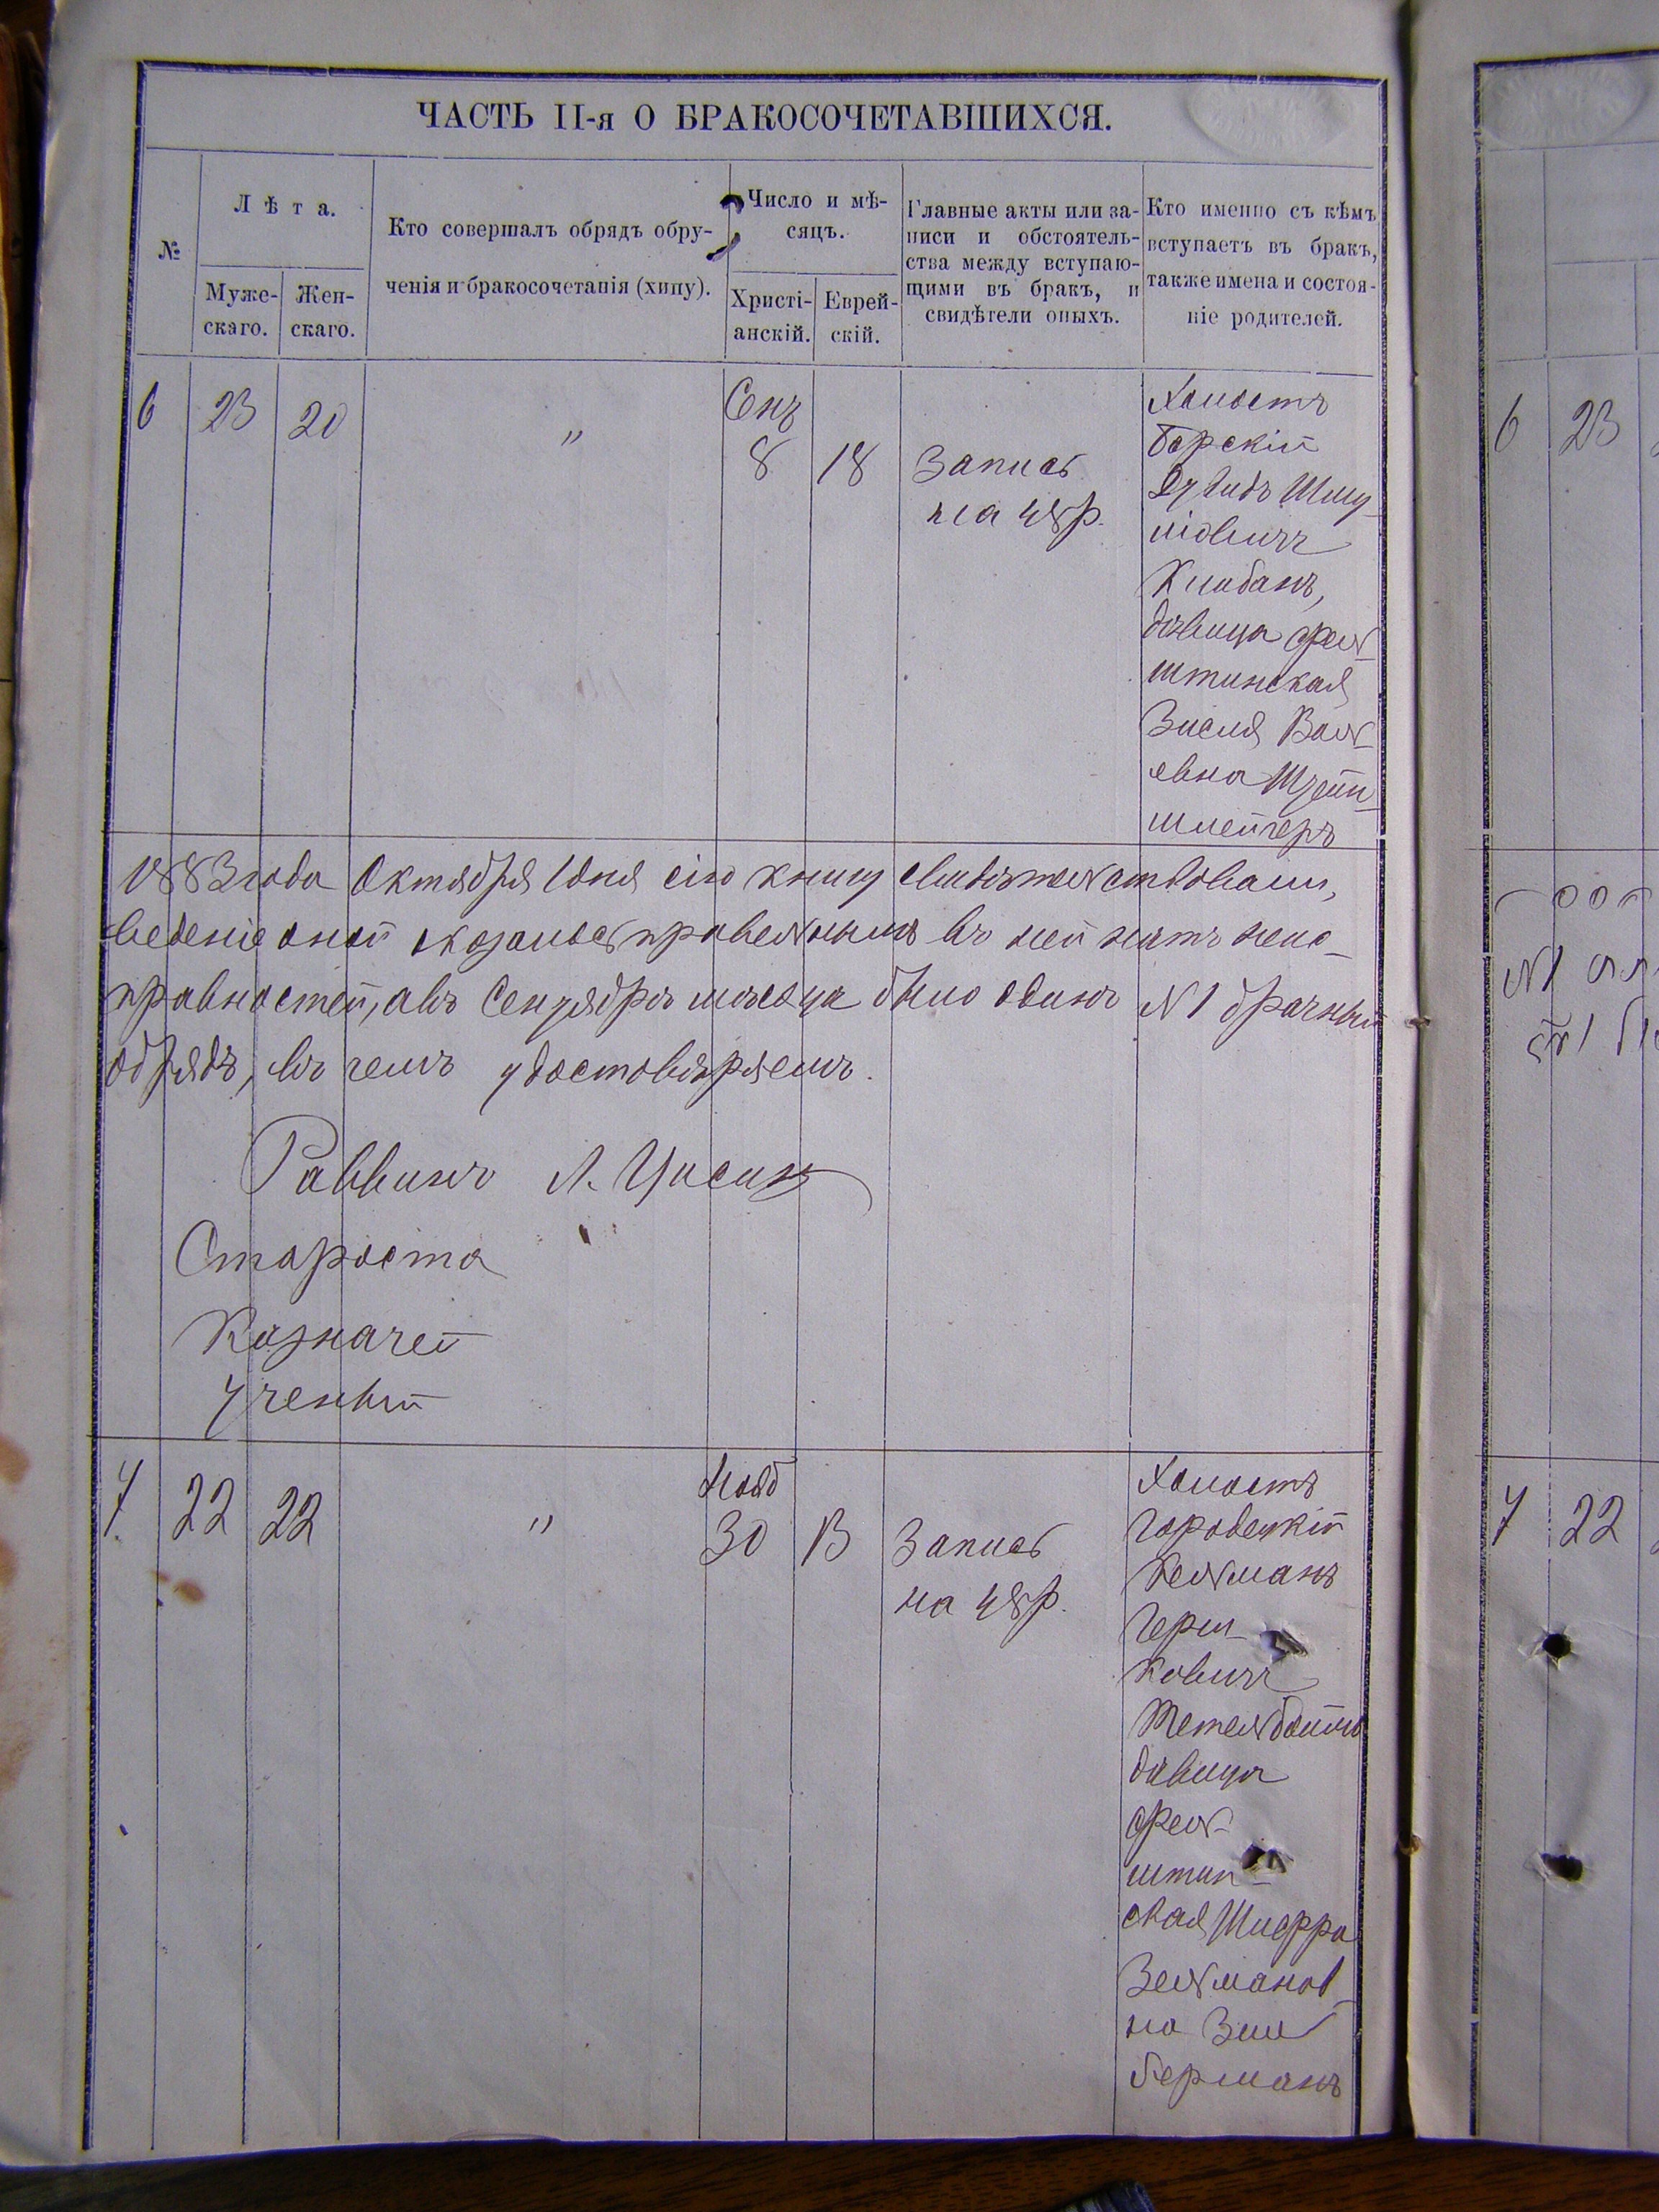 ЧАСТЬ II-я О БРАКОСОЧЕТАВШИХСЯ.
№
Лѣта.
Муже-
скаго.
Жен-
скаго.
Кто совершалъ обрядъ обру-
ченія и бракосочетанія (хипу).
Число и мѣ-
сяцъ.
Христі-
анскій.
Еврей-
скій.
Главные акты или за-
писи и обстоятель-
ства между вступаю-
щими въ бракъ, и
свидѣтели оныхъ.
Кто именно съ кѣмъ
вступаетъ въ бракъ,
также имена и состоя-
ніе родителей.
6 23 20 " Сен 8 18
Запись
на 48 р.
Холостъ
Барскій
Дувидъ Шму-
ліовичъ
Клибанъ,
дѣвица Фель-
штинская
ЗисляВоль-
квна
шлейгеръ
1883 года Октября 1 дня сію книгу свидѣтельствовали,
веденіе оной оказалось правельнымъ въ ней нѣтъ неис-
правностей, а въ Сентябрѣ мѣсяца было одинъ № 1 брачный
обрядъ, въ чемъ удостовѣряемъ.
Раввинъ Л.
Староста
Казначей
Ученый
7 22 22 " Нояб 30 13
Запись
на 48 р.
Холостъ
Городецкій
Кельманъ
Герш-
ковичъ
Тетельбоймъ
дѣвица
Фель-
штин-
ская Шифра
Зельманов-
на Зиль
берманъ
6 23
№ 1
7 22